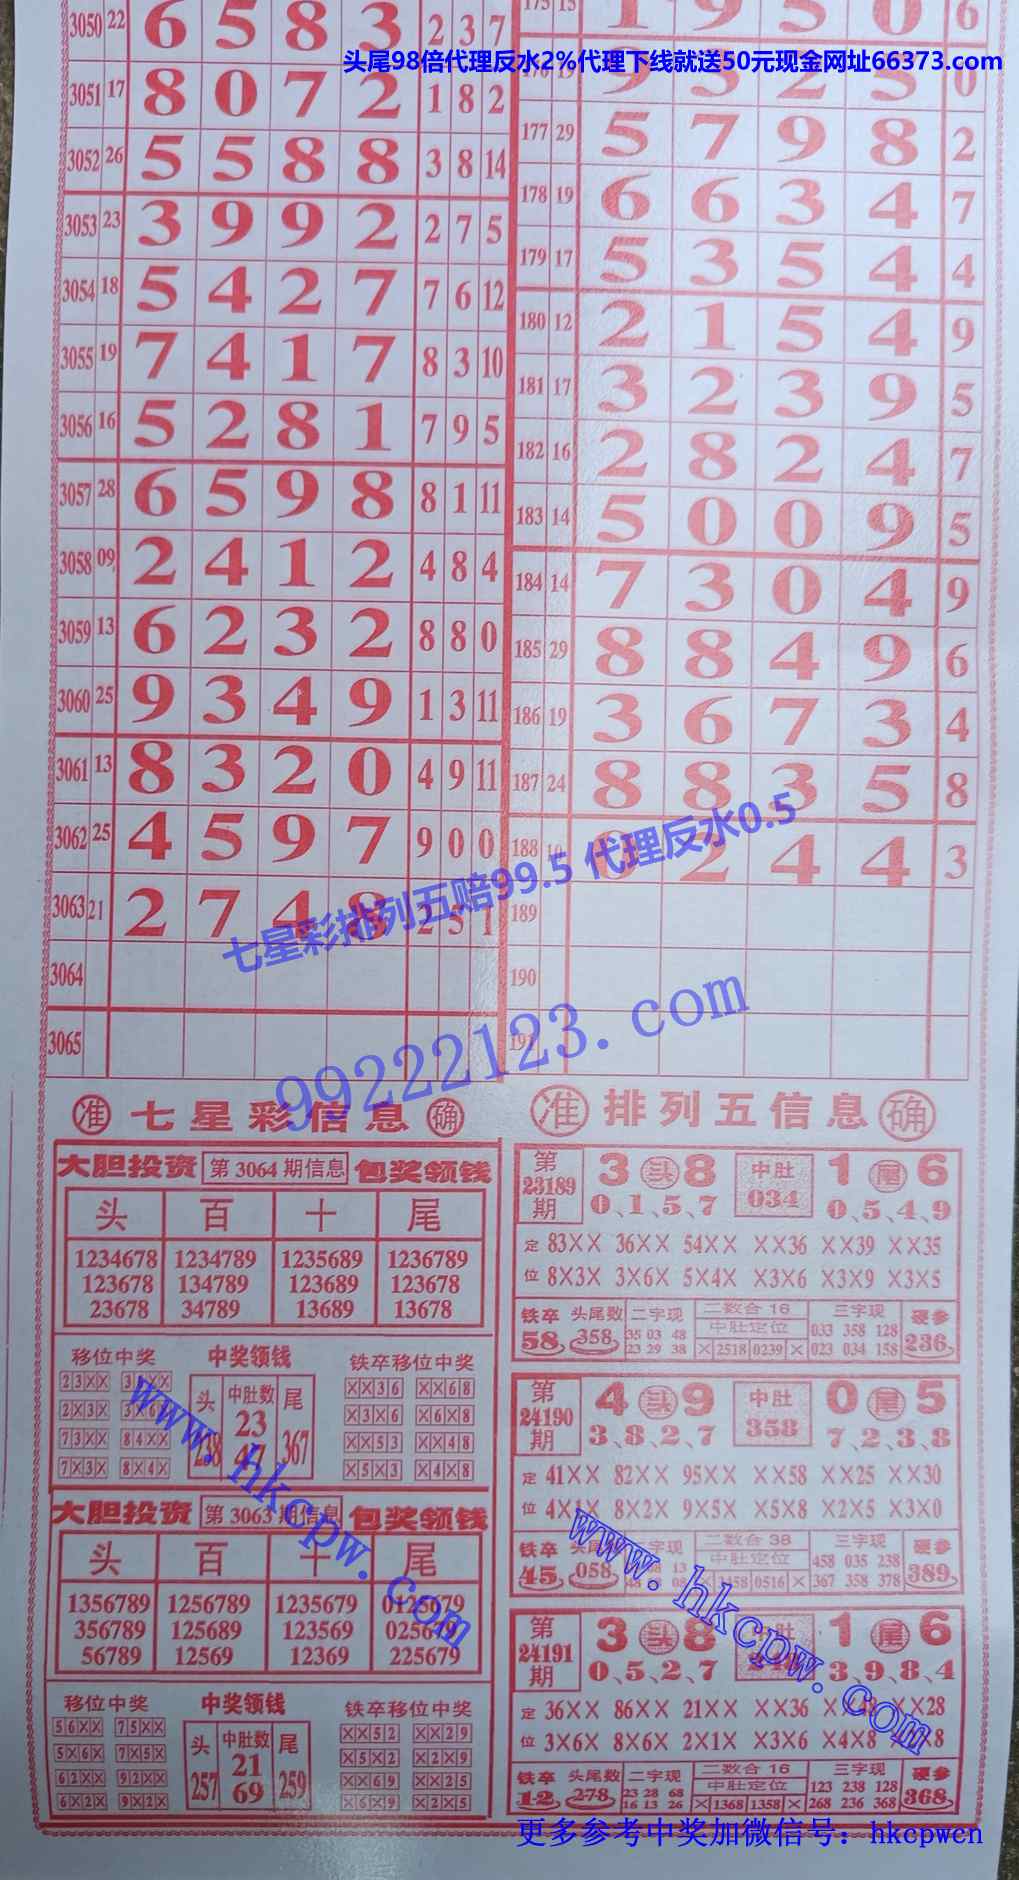 3050 22 6 5 8 3 2 3 7
3051 17 8 0 7 2 1 8 2
3052 26 5 5 8 8 3 8 14
3053 23 3 9 9 2 2 7 5
3054 18 5 4 2 7 7 6 12
3055 19 7 4 1 7 8 3 10
3056 16 5 2 8 1 7 9 5
3057 28 6 5 9 8 8 1 11
3058 09 2 4 1 2 4 8 4
3059 13 6 2 3 2 8 8 0
3060 25 9 3 4 9 1 3 11
3061 13 8 3 2 0 4 9 11
3062 25 4 5 9 7 9 0 0
3063 21 2 7 4 8 2 5 1
3064
3065
175 15 1 9 5 0 6
头尾98倍代理反水2%代理下线就送50元现金网址66373.com
176 19 9 5 2 3 0
177 29 5 7 9 8 2
178 19 6 6 3 4 7
179 17 5 3 5 4 4
180 12 2 1 5 4 9
181 17 3 2 3 9 5
182 16 2 8 2 4 7
183 14 5 0 0 9 5
184 14 7 3 0 4 9
185 29 8 8 4 9 6
186 19 3 6 7 3 4
187 24 8 8 3 5 8
188 10 0 2 4 4 3
189
190
191
七星彩排列五赔99.5 代理反水0.5
99222123.com
准 七星彩信息 确
大胆投资 第 3064 期信息 包奖领钱
头 百 十 尾
1234678 1234789 1235689 1236789
123678 134789 123689 123678
23678 34789 13689 13678
移位中奖 中奖领钱 铁卒移位中奖
23XX
2X3X
73XX 84XX
7X3X 8X4X
头 中肚数 尾
23
238 47 367
XX36 XX68
X3X6 X6X8
XX53 XX48
X5X3 X4X8
大胆投资 第 3063 期信息 包奖领钱
头 百 十 尾
1356789 1256789 1235679 0125679
356789 125689 123569 025679
56789 12569 12369 225679
移位中奖 中奖领钱 铁卒移位中奖
56XX 75XX
5X6X 7X5X
62XX 92XX
6X2X 9X2X
头 中肚数 尾
21
257 69 259
XX52 XX29
X5X2 X2X9
XX69 XX25
X6X9 X2X5
准 排列五信息 确
第 23189 期 3 头 8 中肚 1 尾 6
0、1、5、7 034 0、5、4、9
定 83XX 36XX 54XX XX36 XX39 XX35
位 8X3X 3X6X 5X4X X3X6 X3X9 X3X5
铁卒 头尾数 二字现 二数合 16 三字现 硬参
58 358 35 03 48 中肚定位 033 358 128 236
23 29 38 X 2518 0239 X 023 034 158
第 24190 期 4 头 9 中肚 0 尾 5
3、8、2、7 358 7、2、3、8
定 41XX 82XX 95XX XX58 XX25 XX30
位 4X1X 8X2X 9X5X X5X8 X2X5 X3X0
铁卒 头尾数 二字现 二数合 38 三字现 硬参
45 058 中肚定位 458 035 238 389
0516 X 367 358 378
第 24191 期 3 头 8 中肚 1 尾 6
0、5、2、7 3、9、8、4
定 36XX 86XX 21XX XX36 XX28
位 3X6X 8X6X 2X1X X3X6 X4X8
铁卒 头尾数 二字现 二数合 16 三字现 硬参
12 278 23 28 68 中肚定位 123 238 128 368
16 13 26 X 1368 1358 X 268 236 368
www.hkcpw.com
www.hkcpw.com
更多参考中奖加微信号：hkcpwcn